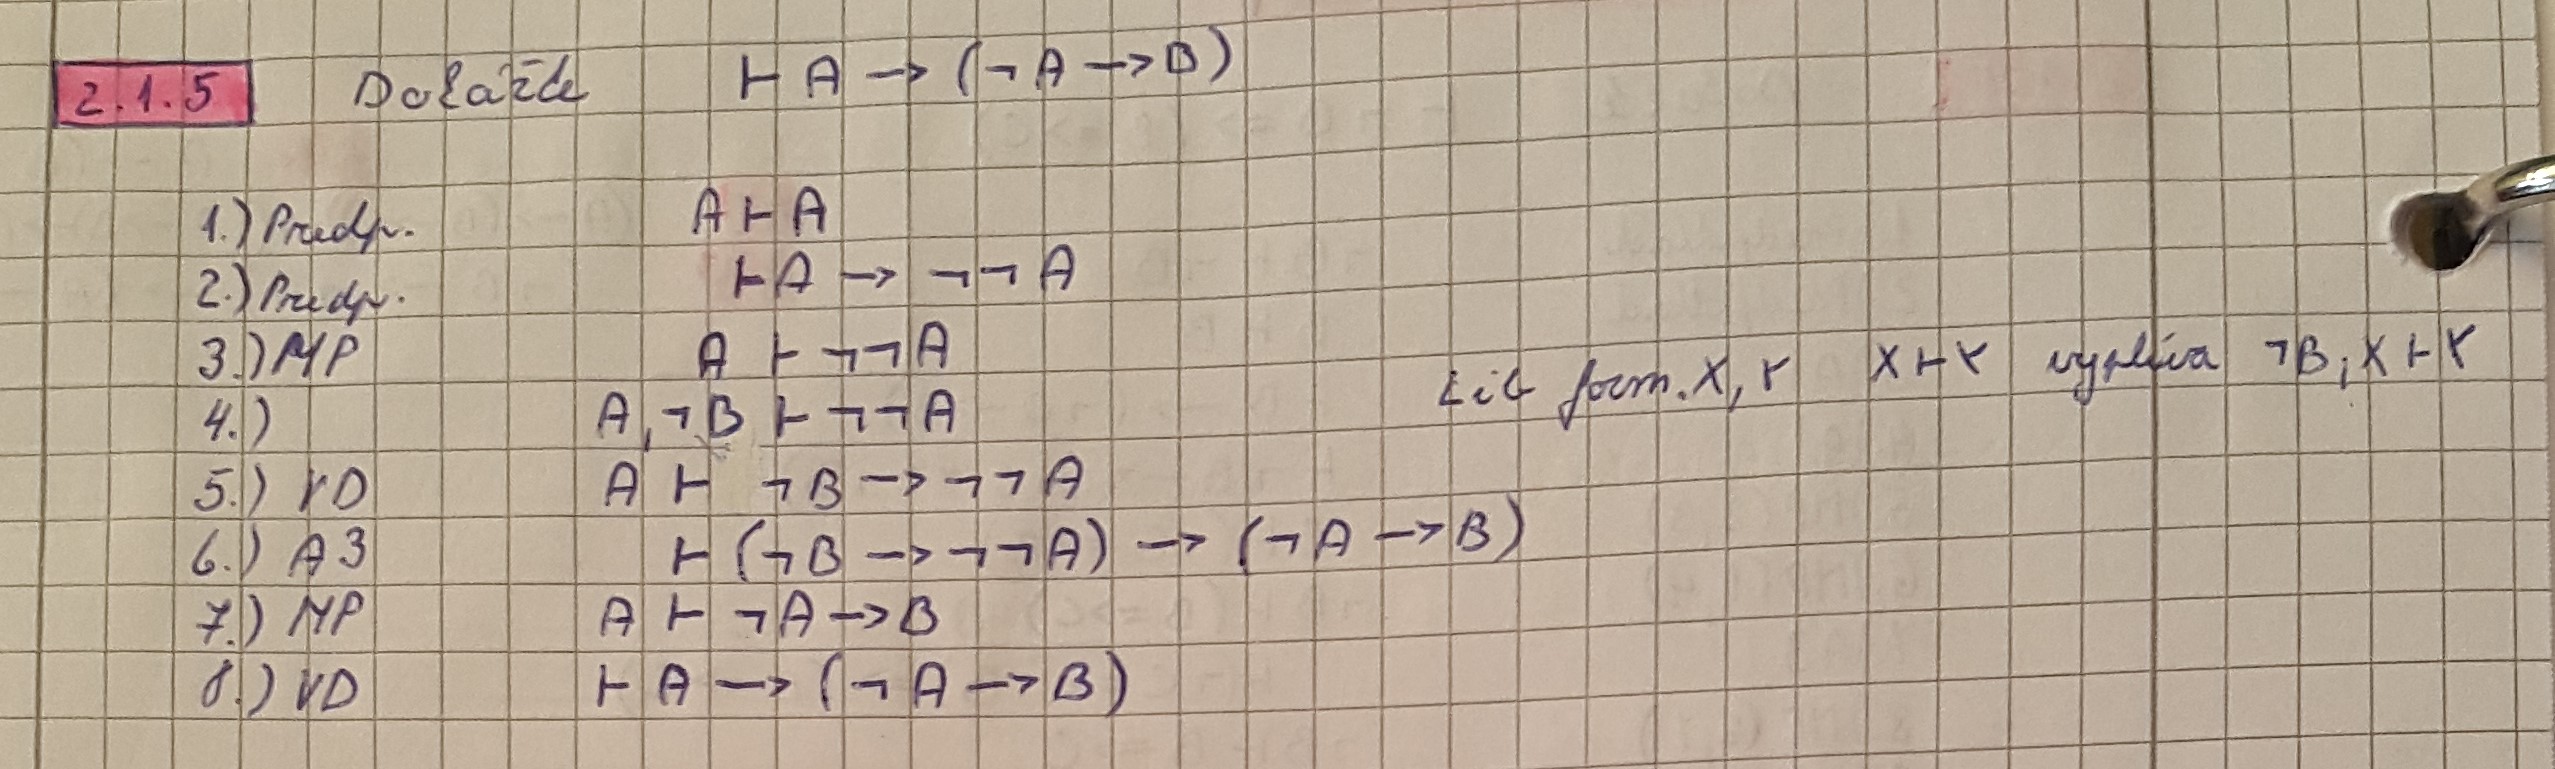 2.1.5 Dokážte ⊢ A → (¬A → B)
1.) Predp. A ⊢ A
2.) Predp. ⊢ A → ¬¬A
3.) MP A ⊢ ¬¬A
4.) A, ¬B ⊢ ¬¬A form. X, Y X ⊢ Y vyplíva ¬B, X ⊢ Y
5.) VD A ⊢ ¬B → ¬¬A
6.) A3 ⊢ (¬B → ¬¬A) → (¬A → B)
7.) MP A ⊢ ¬A → B
8.) VD ⊢ A → (¬A → B)